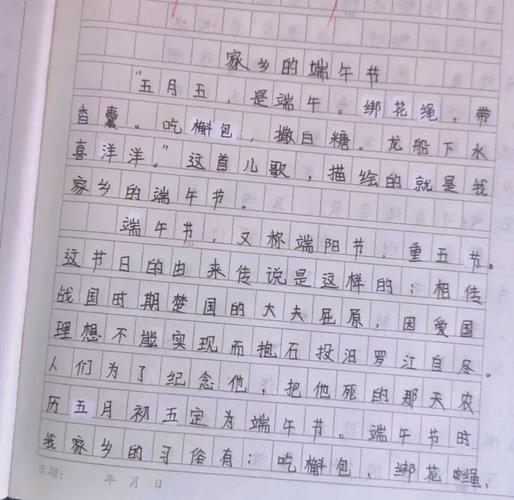 家乡的端午节
“五月五，是端午。绑花绳，带
香囊。吃槲包，撒白糖。龙船下水
喜洋洋。”这首儿歌，描绘的就是我
家乡的端午节。
端午节，又称端阳节，重五节。
这节日的由来传说是这样的：相传
战国时期楚国的大夫屈原，因爱国
理想不能实现而抱石投汨罗江自尽。
人们为了纪念他，把他死的那天农
历五月初五定为端午节。端午节时
我家乡的习俗有：吃槲包，绑花绳、
日期： 年 月 日